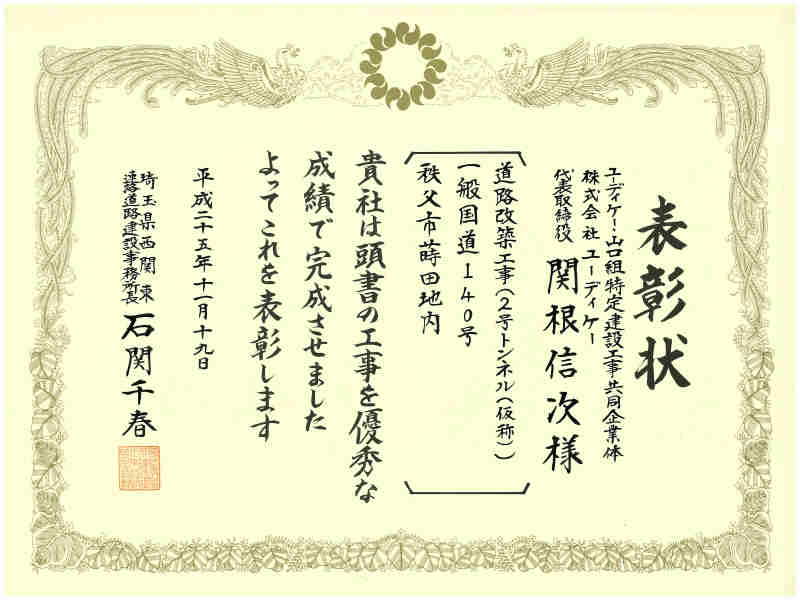 表彰状
ユーディケー・山口組特定建設工事共同企業体
株式会社 ユーディケー
代表取締役 関根信次様
道路改築工事(2号トンネル(仮称))
一般国道140号
秩父市蒔田地内
貴社は頭書の工事を優秀な
成績で完成させました
よってこれを表彰します
平成二十五年十一月十九日
埼玉県西関東
連絡道路建設事務所長 石関千春